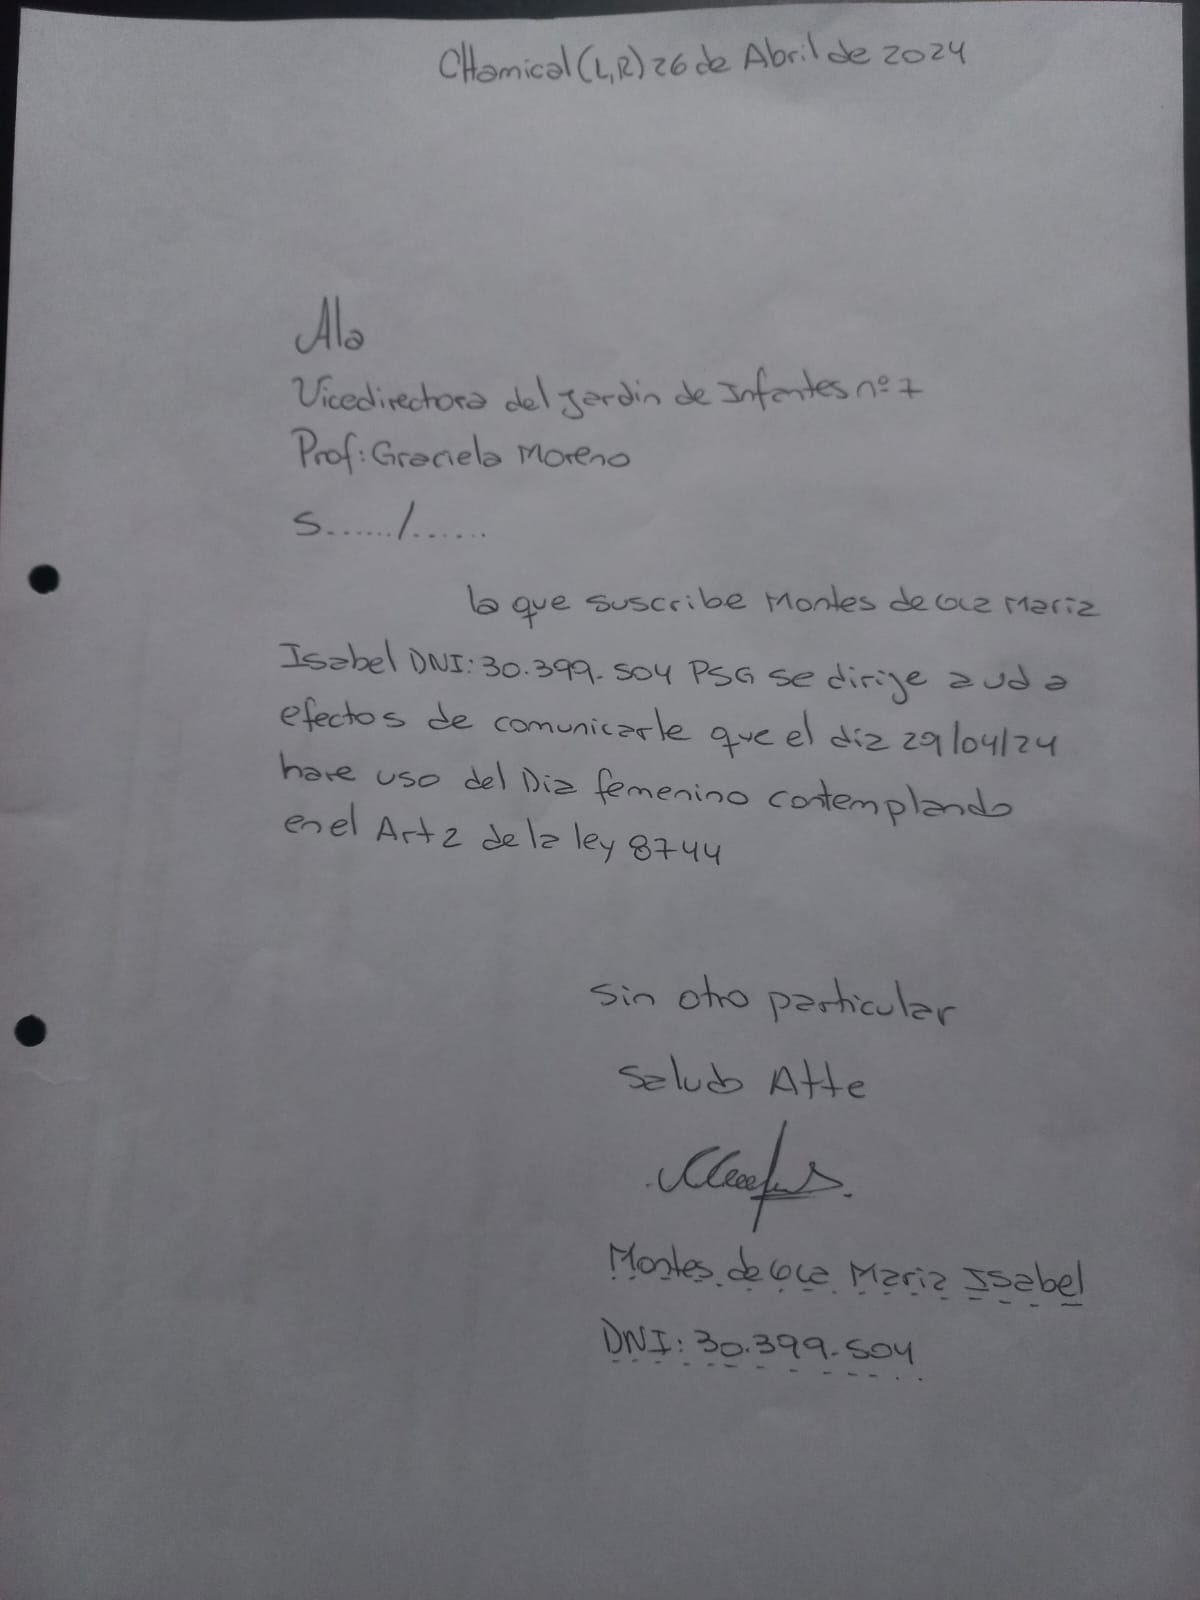 CHamical (L,R) 26 de Abril de 2024
Ala
Vicedirectora del Jardin de Infantes nº 7
Prof: Graciela Moreno
S....../......
la que suscribe Montes de Oca Maria
Isabel DNI: 30.399.504 PSG se dirige a ud a
efectos de comunicarle que el dia 29/04/24
hare uso del Dia femenino contemplando
en el Art 2 de la ley 8744
Sin otro particular
Saludo Atte
Montes de Oca Maria Isabel
DNI: 30.399.504